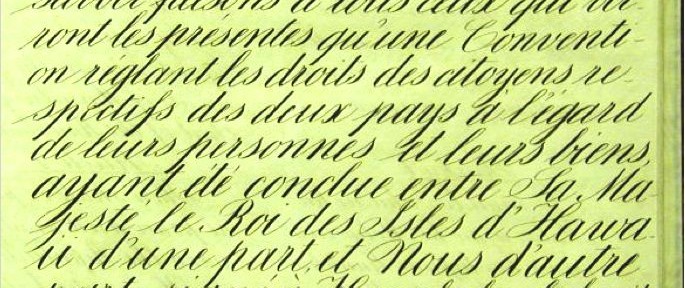 savoir faisons à tous ceux qui ver-
ront les présentes qu'une Conventi-
on réglant les droits des citoyens re-
spectifs des deux pays à l'égard
de leurs personnes et leurs biens,
ayant été conclue entre Sa Ma
jesté le Roi des Isles d'Hawa-
ii d'une part, et Nous d'autre